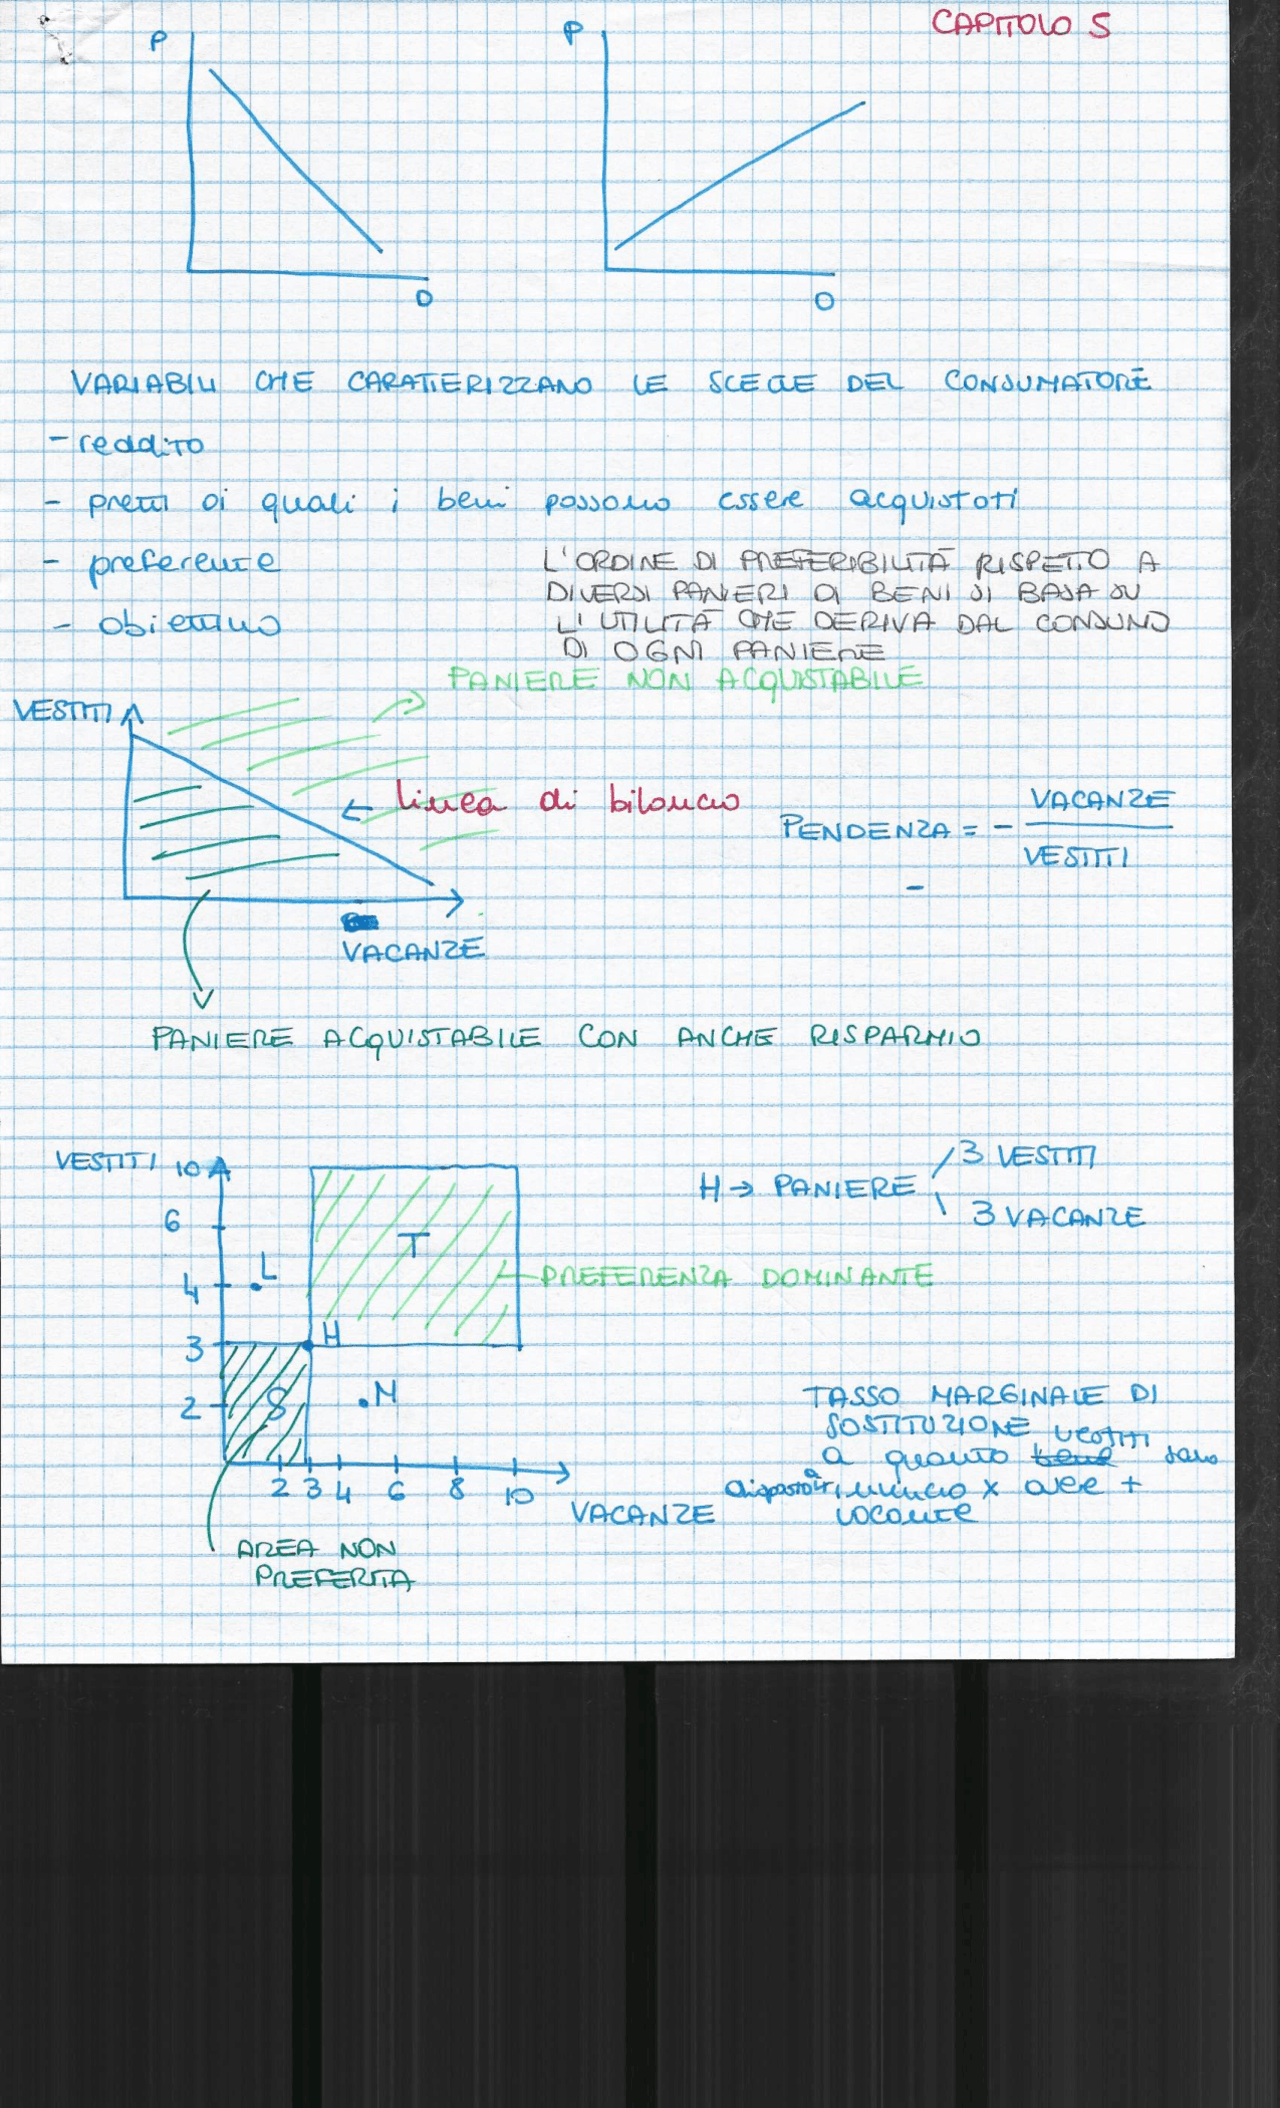 CAPITOLO 5
P
P
D
O
VARIABILI CHE CARATTERIZZANO LE SCELTE DEL CONSUMATORE
- reddito
- prezzi ai quali i beni possono essere acquistati
- preferenze
- obiettivo
L'ORDINE DI PREFERIBILITÀ RISPETTO A
DIVERSI PANIERI DI BENI SI BASA SU
L'UTILITÀ CHE DERIVA DAL CONSUMO
DI OGNI PANIERE
PANIERE NON ACQUISTABILE
VESTITI
← linea di bilancio
PENDENZA = - VACANZE
VESTITI
-
VACANZE
PANIERE ACQUISTABILE CON ANCHE RISPARMIO
VESTITI 10
6
4
3
2
L
T
H
S
M
2 3 4 6 8 10
VACANZE
H → PANIERE
3 VESTITI
3 VACANZE
PREFERENZA DOMINANTE
AREA NON
PREFERITA
TASSO MARGINALE DI
SOSTITUZIONE
a quanto bene vestiti sono
disposto a rinuncio x avere +
vacanze